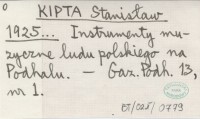 0
KIPTA Stanisław
1925... Instrumenty mu-
zyczne ludu polskiego na
Podhalu. - Gaz. Podh. 13,
nr 1.
ET/025/0779